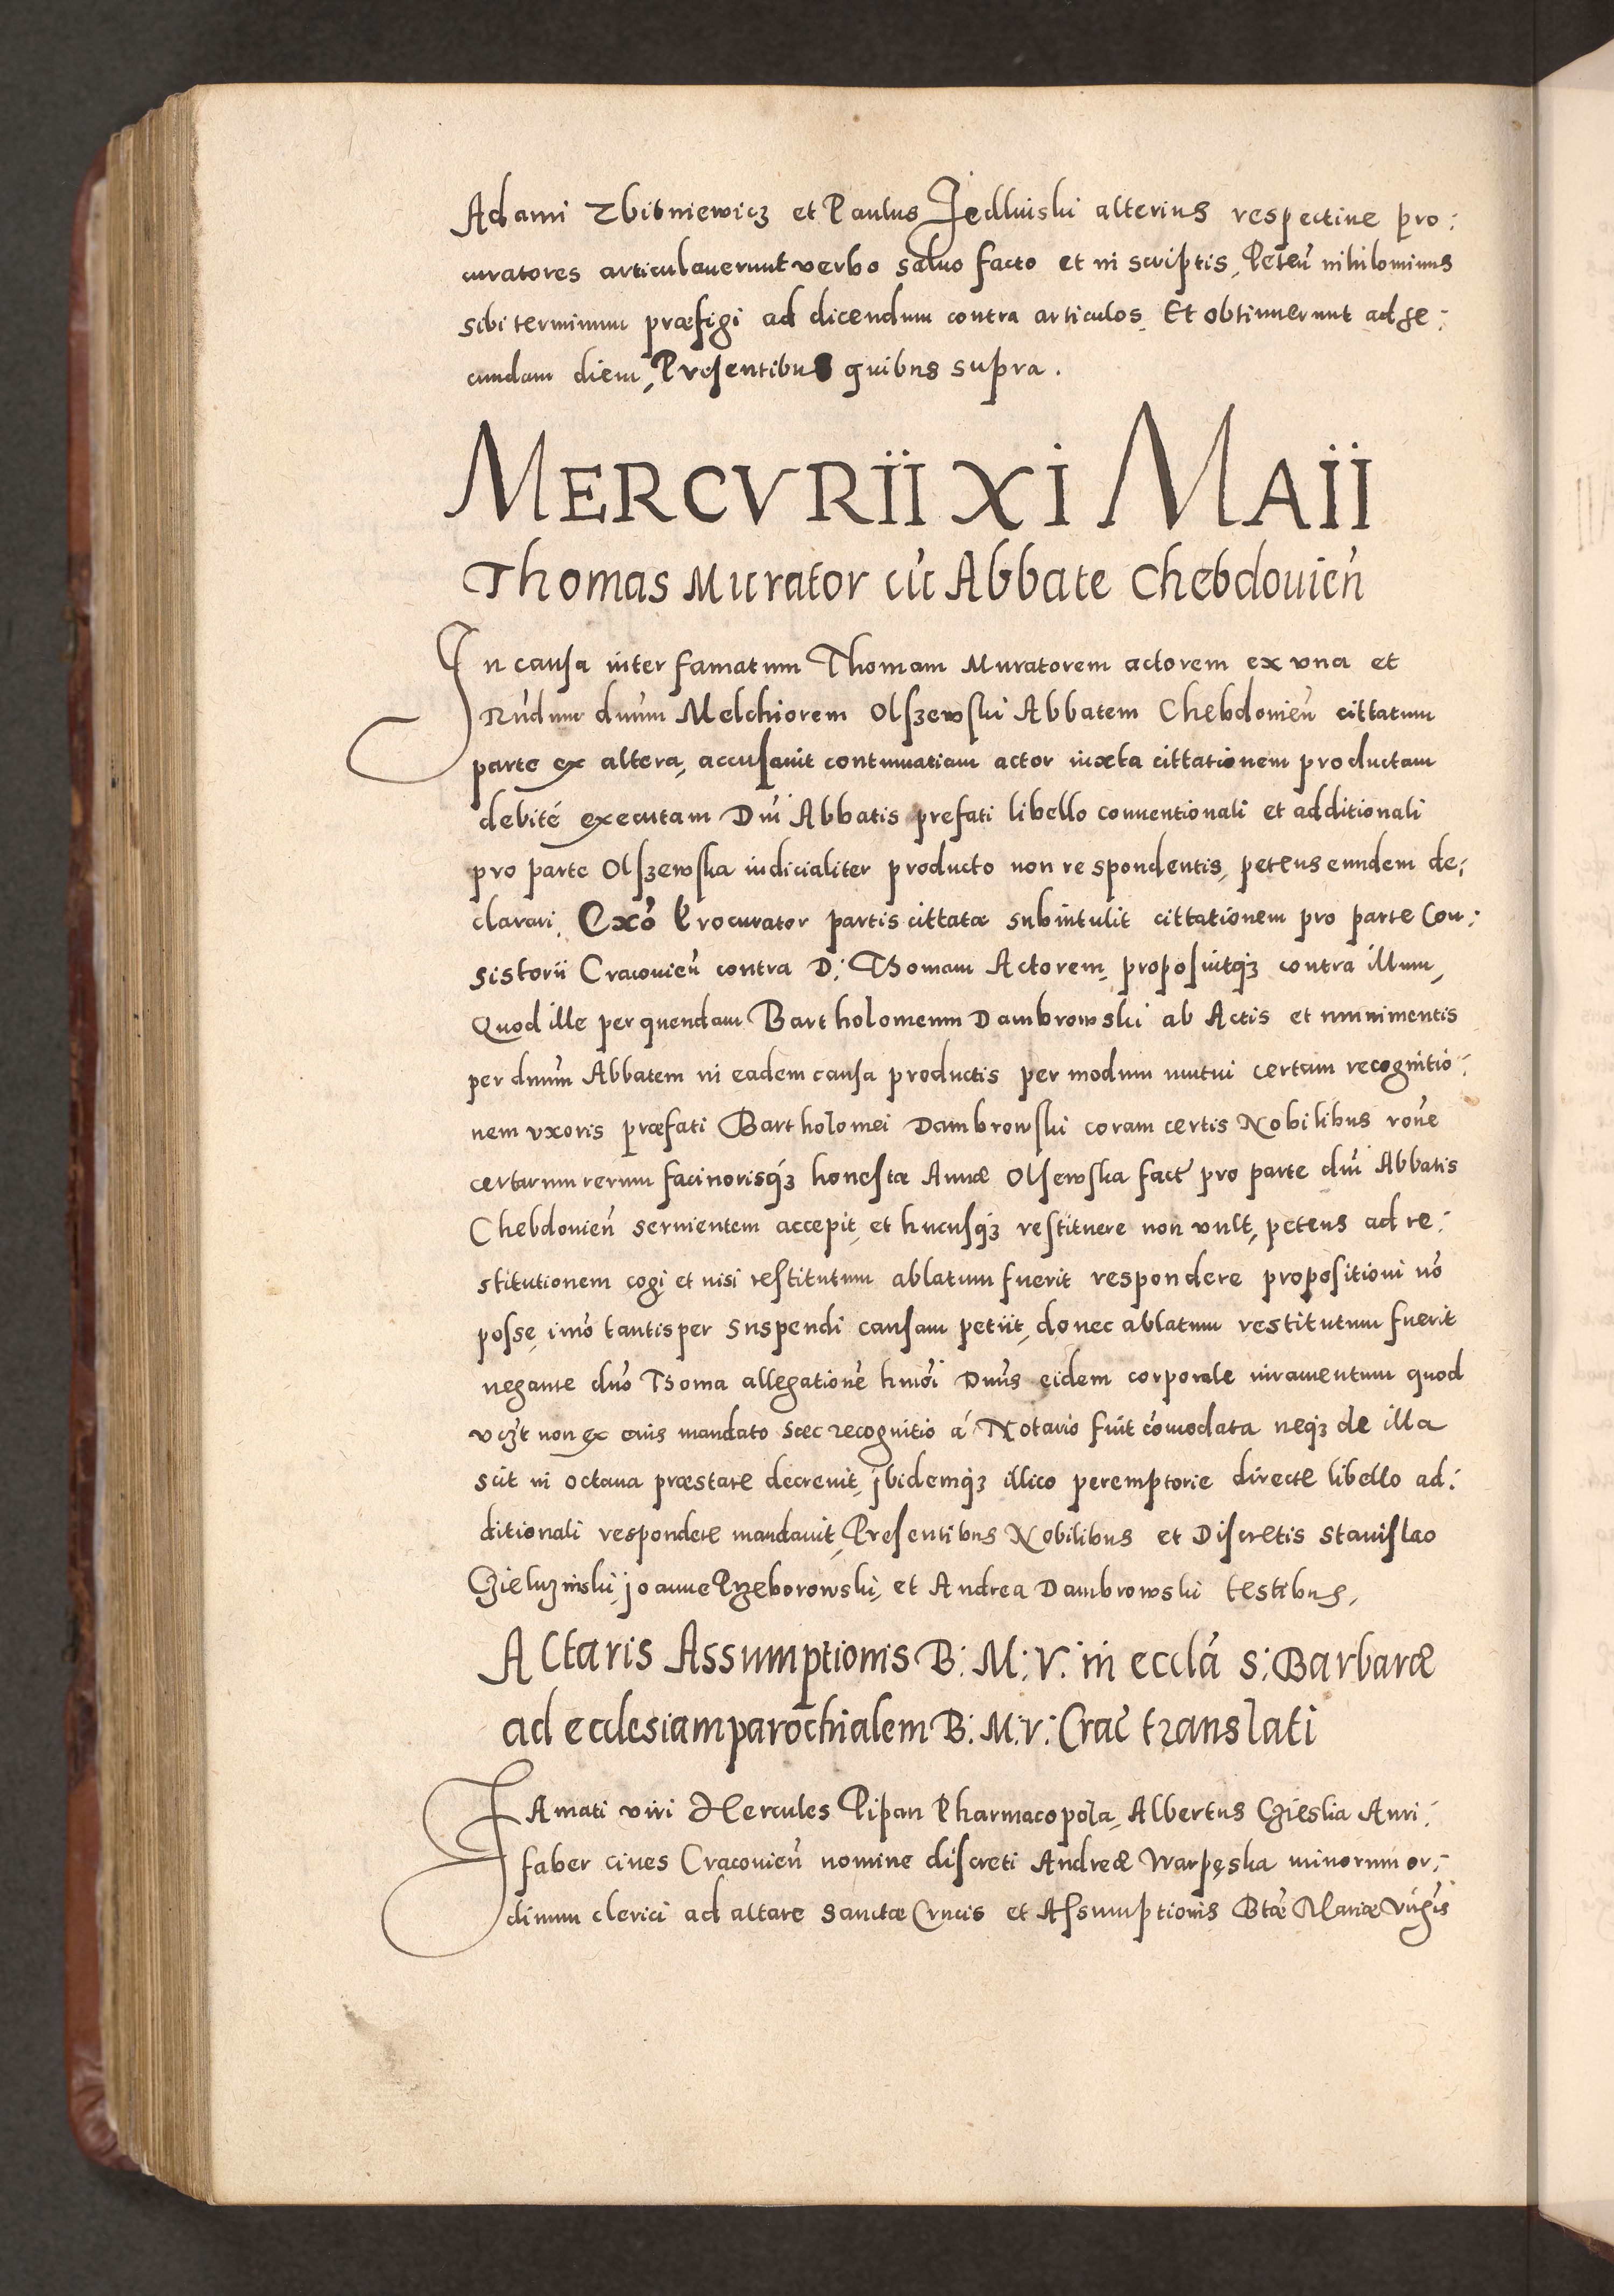 Adami Zbitniewicz et Paulus Jedlinski alterius respective pro:
curatores articulaverunt verbo salvo facto et in scriptis, Peteñ nihilominus
sibi terminum præfigi ad dicendum contra articulos. Et obtinuerunt ad se:
cundam diem, Presentibus quibus supra.
MERCVRII XI MAII
Thomas Murator cũ Abbate Chebdovień
In causa inter famatum Thomam Muratorem actorem ex una et
Rńdum dnum Melchiorem Olszewski Abbatem Chebdovień cittatum
parte ex altera, accusavit contumatiam actor iuxta cittationem productam
debité executam Dni Abbatis prefati libello conventionali et additionali
pro parte Olszewska iudicialiter producto non respondentis, petens eundem de:
clarari, Exo Procurator partis cittatæ subintulit cittationem pro parte Con:
sistorii Cracovień contra D: Thomam Actorem, proposuitq3 contra illum,
Quod ille per quendam Bartholomeum Dambrowski ab Actis et munimentis
per dnum Abbatem in eadem causa productis per modum mutui certam recognitio:
nem uxoris præfati Bartholomei Dambrowski coram certis Nobilibus rone
certarum rerum facinorisq3 honestæ Annæ Olsewska fact pro parte dni Abbatis
Chebdovień servientem accepit, et hucusq3 restituere non vult, petens ad re:
stitutionem cogi et nisi restitutum ablatum fuerit respondere propositioni nõ
posse, imo tantisper suspendi causam petiit, donec ablatum restitutum fuerit
negante dno Thoma allegationē hmoi Dnus eidem corporale iuramentum quod
vczt non ex eius mandato hæc recognitio á Notario fuit cõmodata neq3 de illa
scit in octava præstare decrevit, ibidemq3 illico peremptorie directe libello ad:
ditionali respondere mandavit, Presentibus Nobilibus et Discretis Stanislao
Joanne Przeborowski, et Andrea Dambrowski testibus,
Altaris Assumptionis B: M: V: in ecclá S: Barbaræ
ad ecclesiam parochialem B: M: V: Crac translati
Famati viri Hercules Pipan Pharmacopola, Albertus Czieslia Auri:
faber cives Cracovień nomine discreti Andreæ Warpęska minorum or:
dinum clerici ad altare Sanctæ Crucis et Assumptionis Btæ Mariæ Virgis